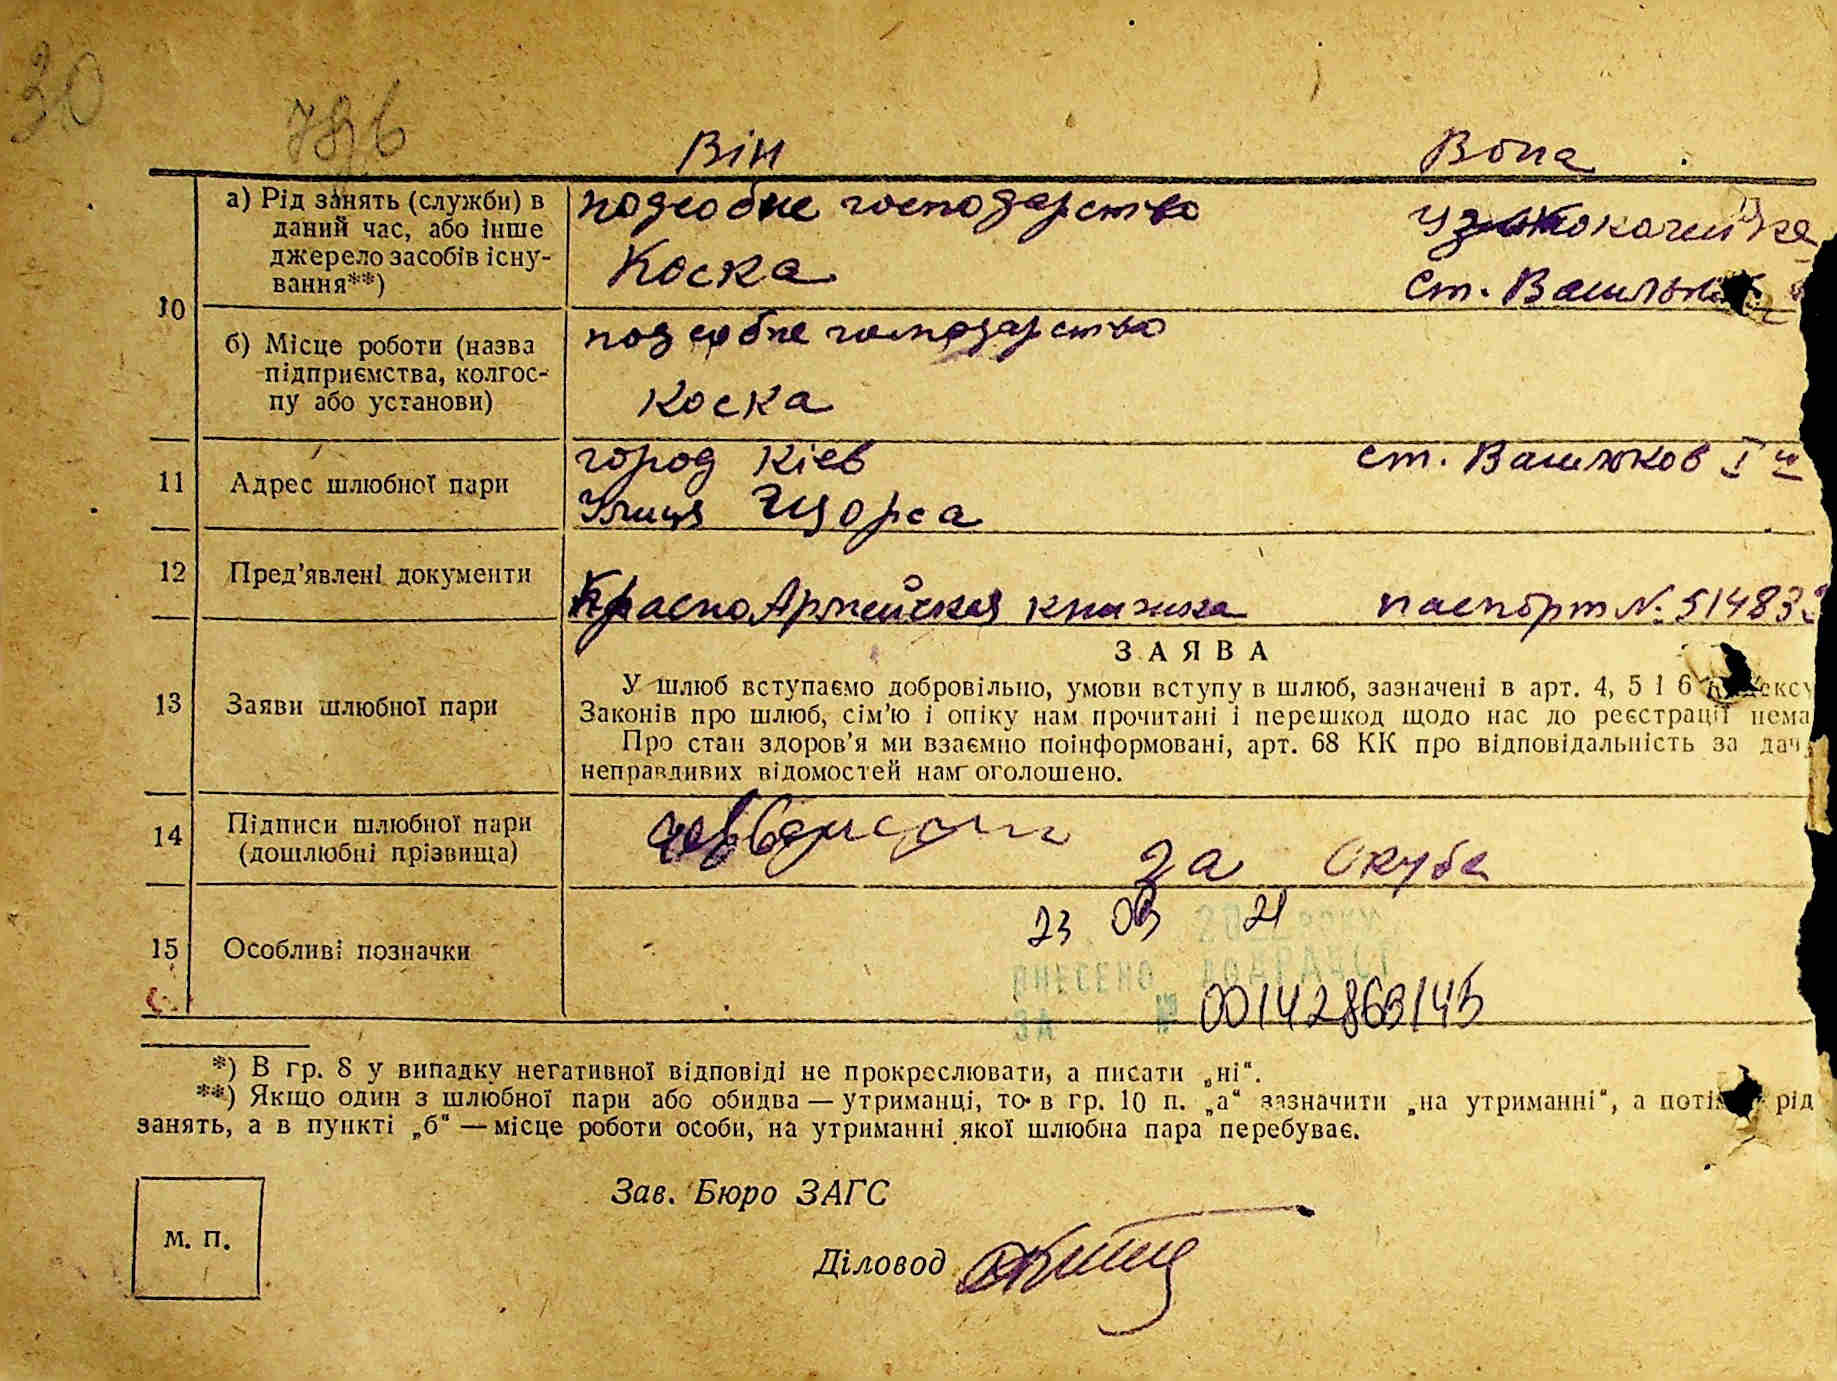 30
Він Вона
а) Рід занять (служби) в
даний час, або інше
джерело засобів існу-
вання**)
подсобне господарство
Коска
ст.
10
б) Місце роботи (назва
підприємства, колгос-
пу або установи)
подсобне господарство
Коска
11 Адрес шлюбної пари
город Кіев ст. Васильков I
Улиця Щорса
12 Пред'явлені документи
КрасноАрмейская книжка паспорт № 51483
ЗАЯВА
13 Заяви шлюбної пари
У шлюб вступаємо добровільно, умови вступу в шлюб, зазначені в арт. 4, 5 і 6
Законів про шлюб, сім'ю і опіку нам прочитані і перешкод щодо нас до реєстрації нема
Про стан здоров'я ми взаємно поінформовані, арт. 68 КК про відповідальність за дач
неправдивих відомостей нам оголошено.
14 Підписи шлюбної пари
(дошлюбні прізвища)
за Скуба
23 03 20 21 року
15 Особливі позначки
ВНЕСЕНО ДО ДРАЦСГ
ЗА № 00142863145
*) В гр. 8 у випадку негативної відповіді не прокреслювати, а писати „ні“.
**) Якщо один з шлюбної пари або обидва — утриманці, то в гр. 10 п. „а“ зазначити „на утриманні“, а потім рід
занять, а в пункті „б“ — місце роботи особи, на утриманні якої шлюбна пара перебуває.
Зав. Бюро ЗАГС
М. П.
Діловод